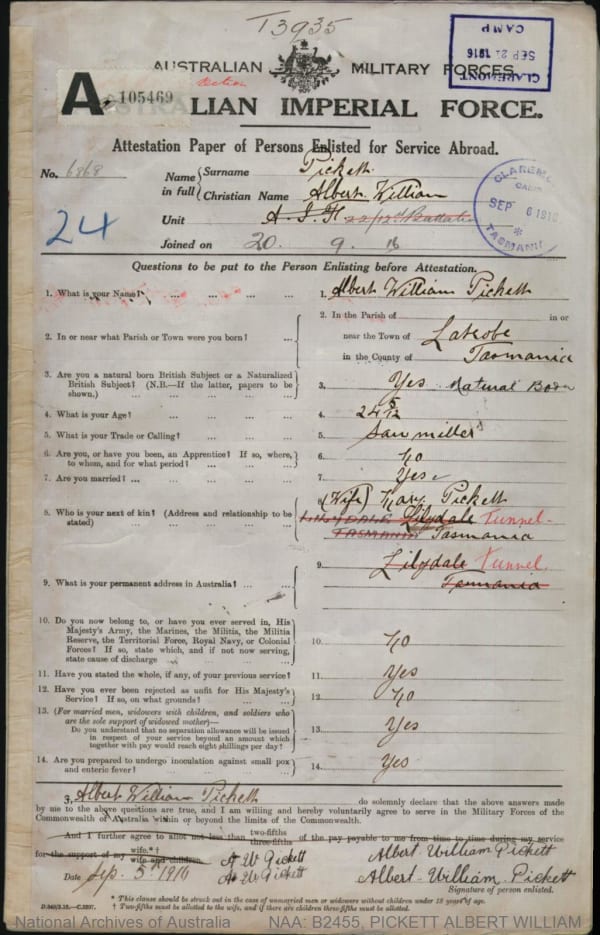 T3935
AUSTRALIAN MILITARY FORCES.
CLAREMONT
SEP 21 1916
CAMP
A. 105469
LIAN IMPERIAL FORCE.
Attestation Paper of Persons Enlisted for Service Abroad.
No. 6868
Name in full
Surname Pickett
Christian Name Albert William
Unit A.I.F. 22/12th Battalion
Joined on 20. 9. 16
24
CLAREMONT
CAMP
SEP 6 1916
TASMANIA
Questions to be put to the Person Enlisting before Attestation.
1. What is your Name? ... ... ... ... 1. Albert William Pickett
2. In or near what Parish or Town were you born? ... 2. In the Parish of in or
near the Town of Latrobe
in the County of Tasmania
3. Are you a natural born British Subject or a Naturalized
British Subject? (N.B.—If the latter, papers to be
shown.) ... ... ... ... 3. Yes Natural Born
4. What is your Age? ... ... ... ... 4. 24 5/12
5. What is your Trade or Calling? ... ... ... 5. Saw miller
6. Are you, or have you been, an Apprentice? If so, where,
to whom, and for what period? ... ... ... 6. No
7. Are you married? ... ... ... ... 7. Yes
8. Who is your next of kin? (Address and relationship to be
stated) ... ... ... 8. (Wife) Mary Pickett
LILLYDALE Lilydale Tunnel.
TASMANIA Tasmania
9. What is your permanent address in Australia? ... ... 9. Lilydale Tunnel.
Tasmania
10. Do you now belong to, or have you ever served in, His
Majesty's Army, the Marines, the Militia, the Militia
Reserve, the Territorial Force, Royal Navy, or Colonial
Forces? If so, state which, and if not now serving,
state cause of discharge ... ... ... 10. No
11. Have you stated the whole, if any, of your previous service? 11. Yes
12. Have you ever been rejected as unfit for His Majesty's
Service? If so, on what grounds? ... ... ... 12. No
13. (For married men, widowers with children, and soldiers who
are the sole support of widowed mother)—
Do you understand that no separation allowance will be issued
in respect of your service beyond an amount which
together with pay would reach eight shillings per day? 13. Yes
14. Are you prepared to undergo inoculation against small pox
and enteric fever? ... ... ... ... 14. Yes
I, Albert William Pickett do solemnly declare that the above answers made
by me to the above questions are true, and I am willing and hereby voluntarily agree to serve in the Military Forces of the
Commonwealth of Australia within or beyond the limits of the Commonwealth.
And I further agree to allot not less than two-fifths three-fifths of the pay payable to me from time to time during my service
for the support of my wife.*† wife and children A W Pickett Albert William Pickett
Date Sep. 5th 1916 A W Pickett Albert William Pickett
Signature of person enlisted.
* This clause should be struck out in the case of unmarried men or widowers without children under 18 years of age.
† Two-fifths must be allotted to the wife, and if there are children three-fifths must be allotted.
National Archives of Australia NAA: B2455, PICKETT ALBERT WILLIAM